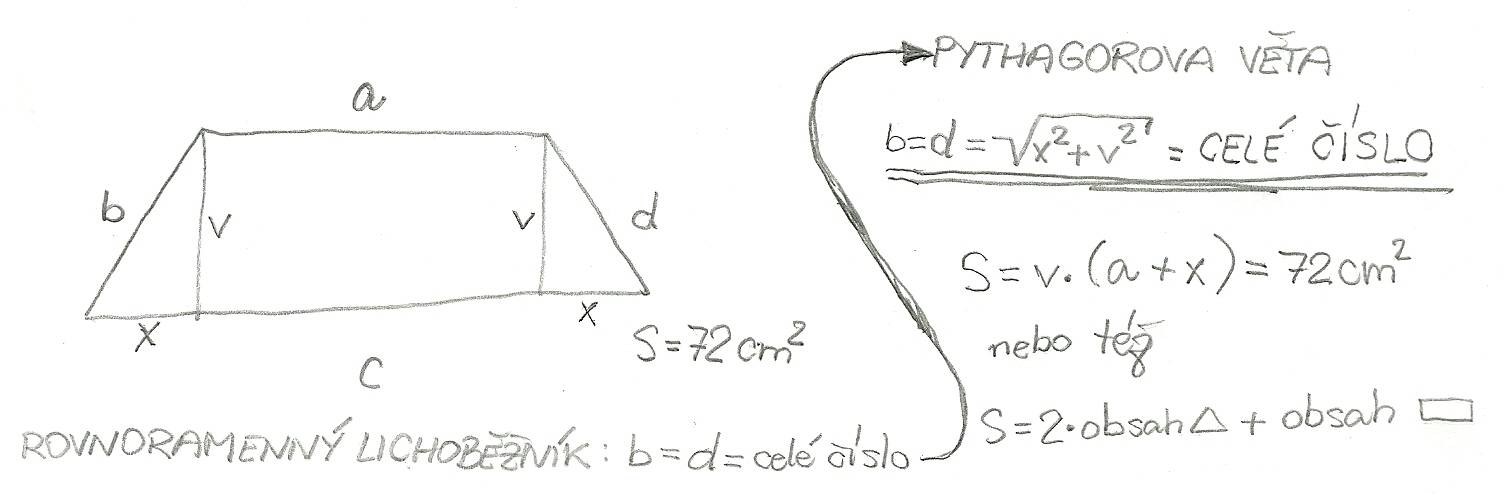 a
b
v
v
d
x
x
c
S=72cm²
ROVNORAMENNÝ LICHOBĚŽNÍK: b=d=celé číslo
PYTHAGOROVA VĚTA
b=d=√x²+v² = CELÉ ČÍSLO
S=v.(a+x)=72cm²
nebo též
S=2·obsah△+obsah ▭